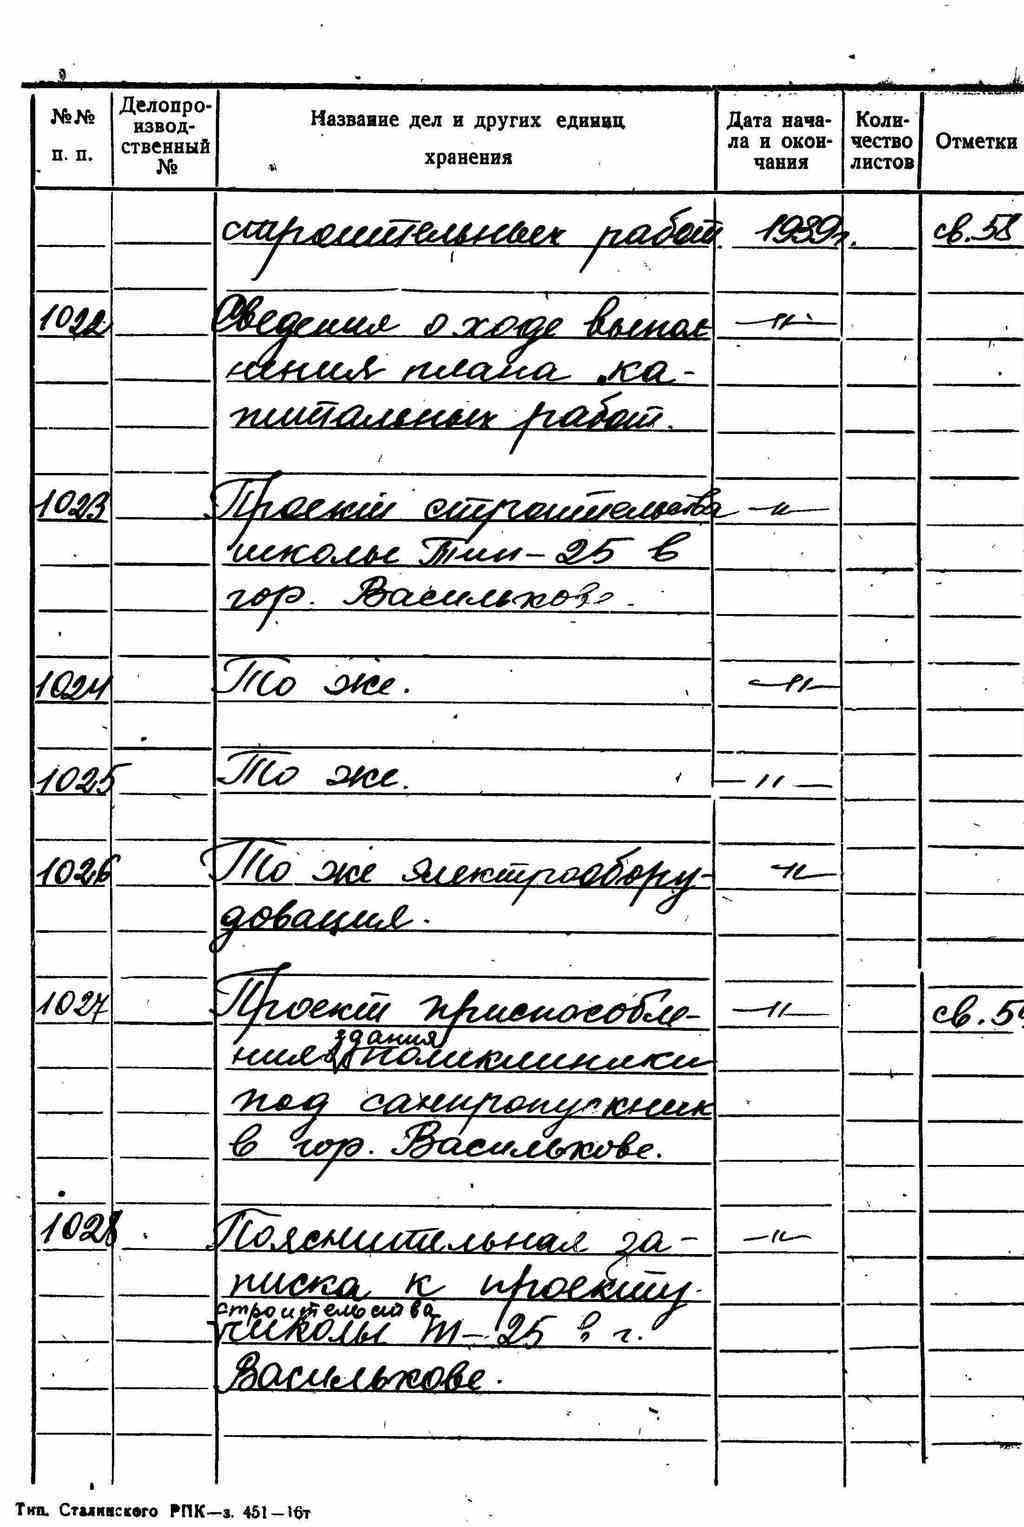 №№ п. п. Делопроизводственный № Название дел и других единиц хранения Дата начала и окончания Количество листов Отметки
строительных работ. 1939г. св. 58
1022 Сведения о ходе выпол-
нения плана ка-
питальных работ.
1023 Проект строительства —〃—
школы Тип-25 в
гор. Василькове.
1024 То же. —〃—
1025 То же. —〃—
1026 То же электрообору- —〃—
дования.
1027 Проект приспособле- —〃—
здания
ния поликлиники
под санпропускник
в гор. Василькове.
1028 Пояснительная за- —〃—
писка к проекту
строительства
школы Т-25 в г.
Василькове.
Тип. Сталинского РПК—з. 451—16т